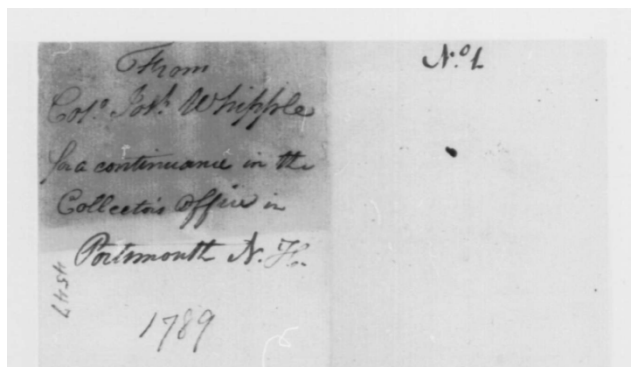 From
Colo. Josh. Whipple
for a continuance in the
Collector's Office in
Portsmouth N. H.
4547
1789
No. 1